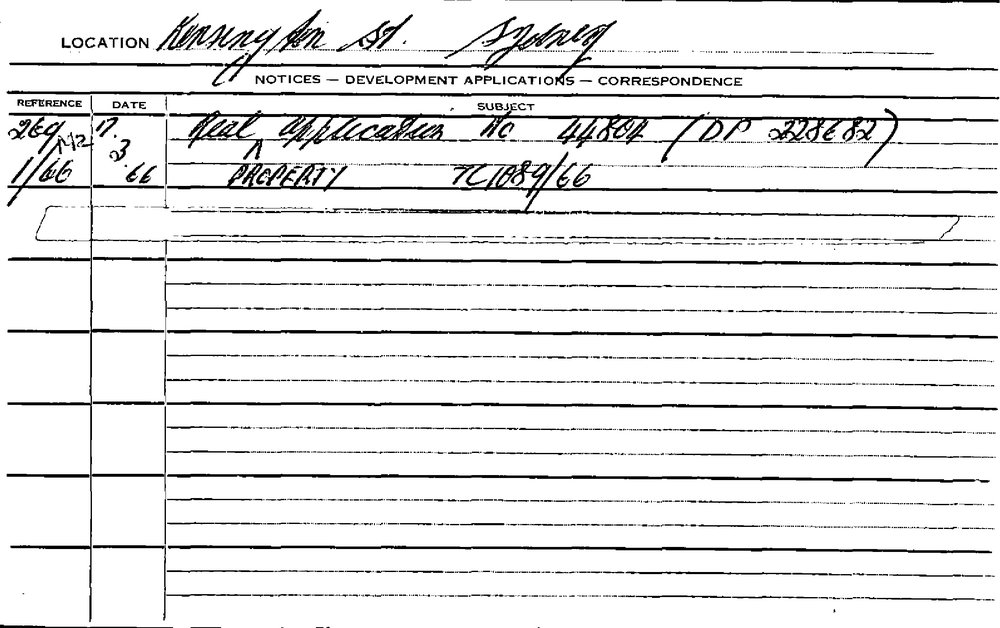 LOCATION Kensington St. Sydney
NOTICES — DEVELOPMENT APPLICATIONS — CORRESPONDENCE
REFERENCE DATE SUBJECT
17. Real ^ application No 44804 (DP 228682)
3
1/66 .66 PROPERTY TC1089/66